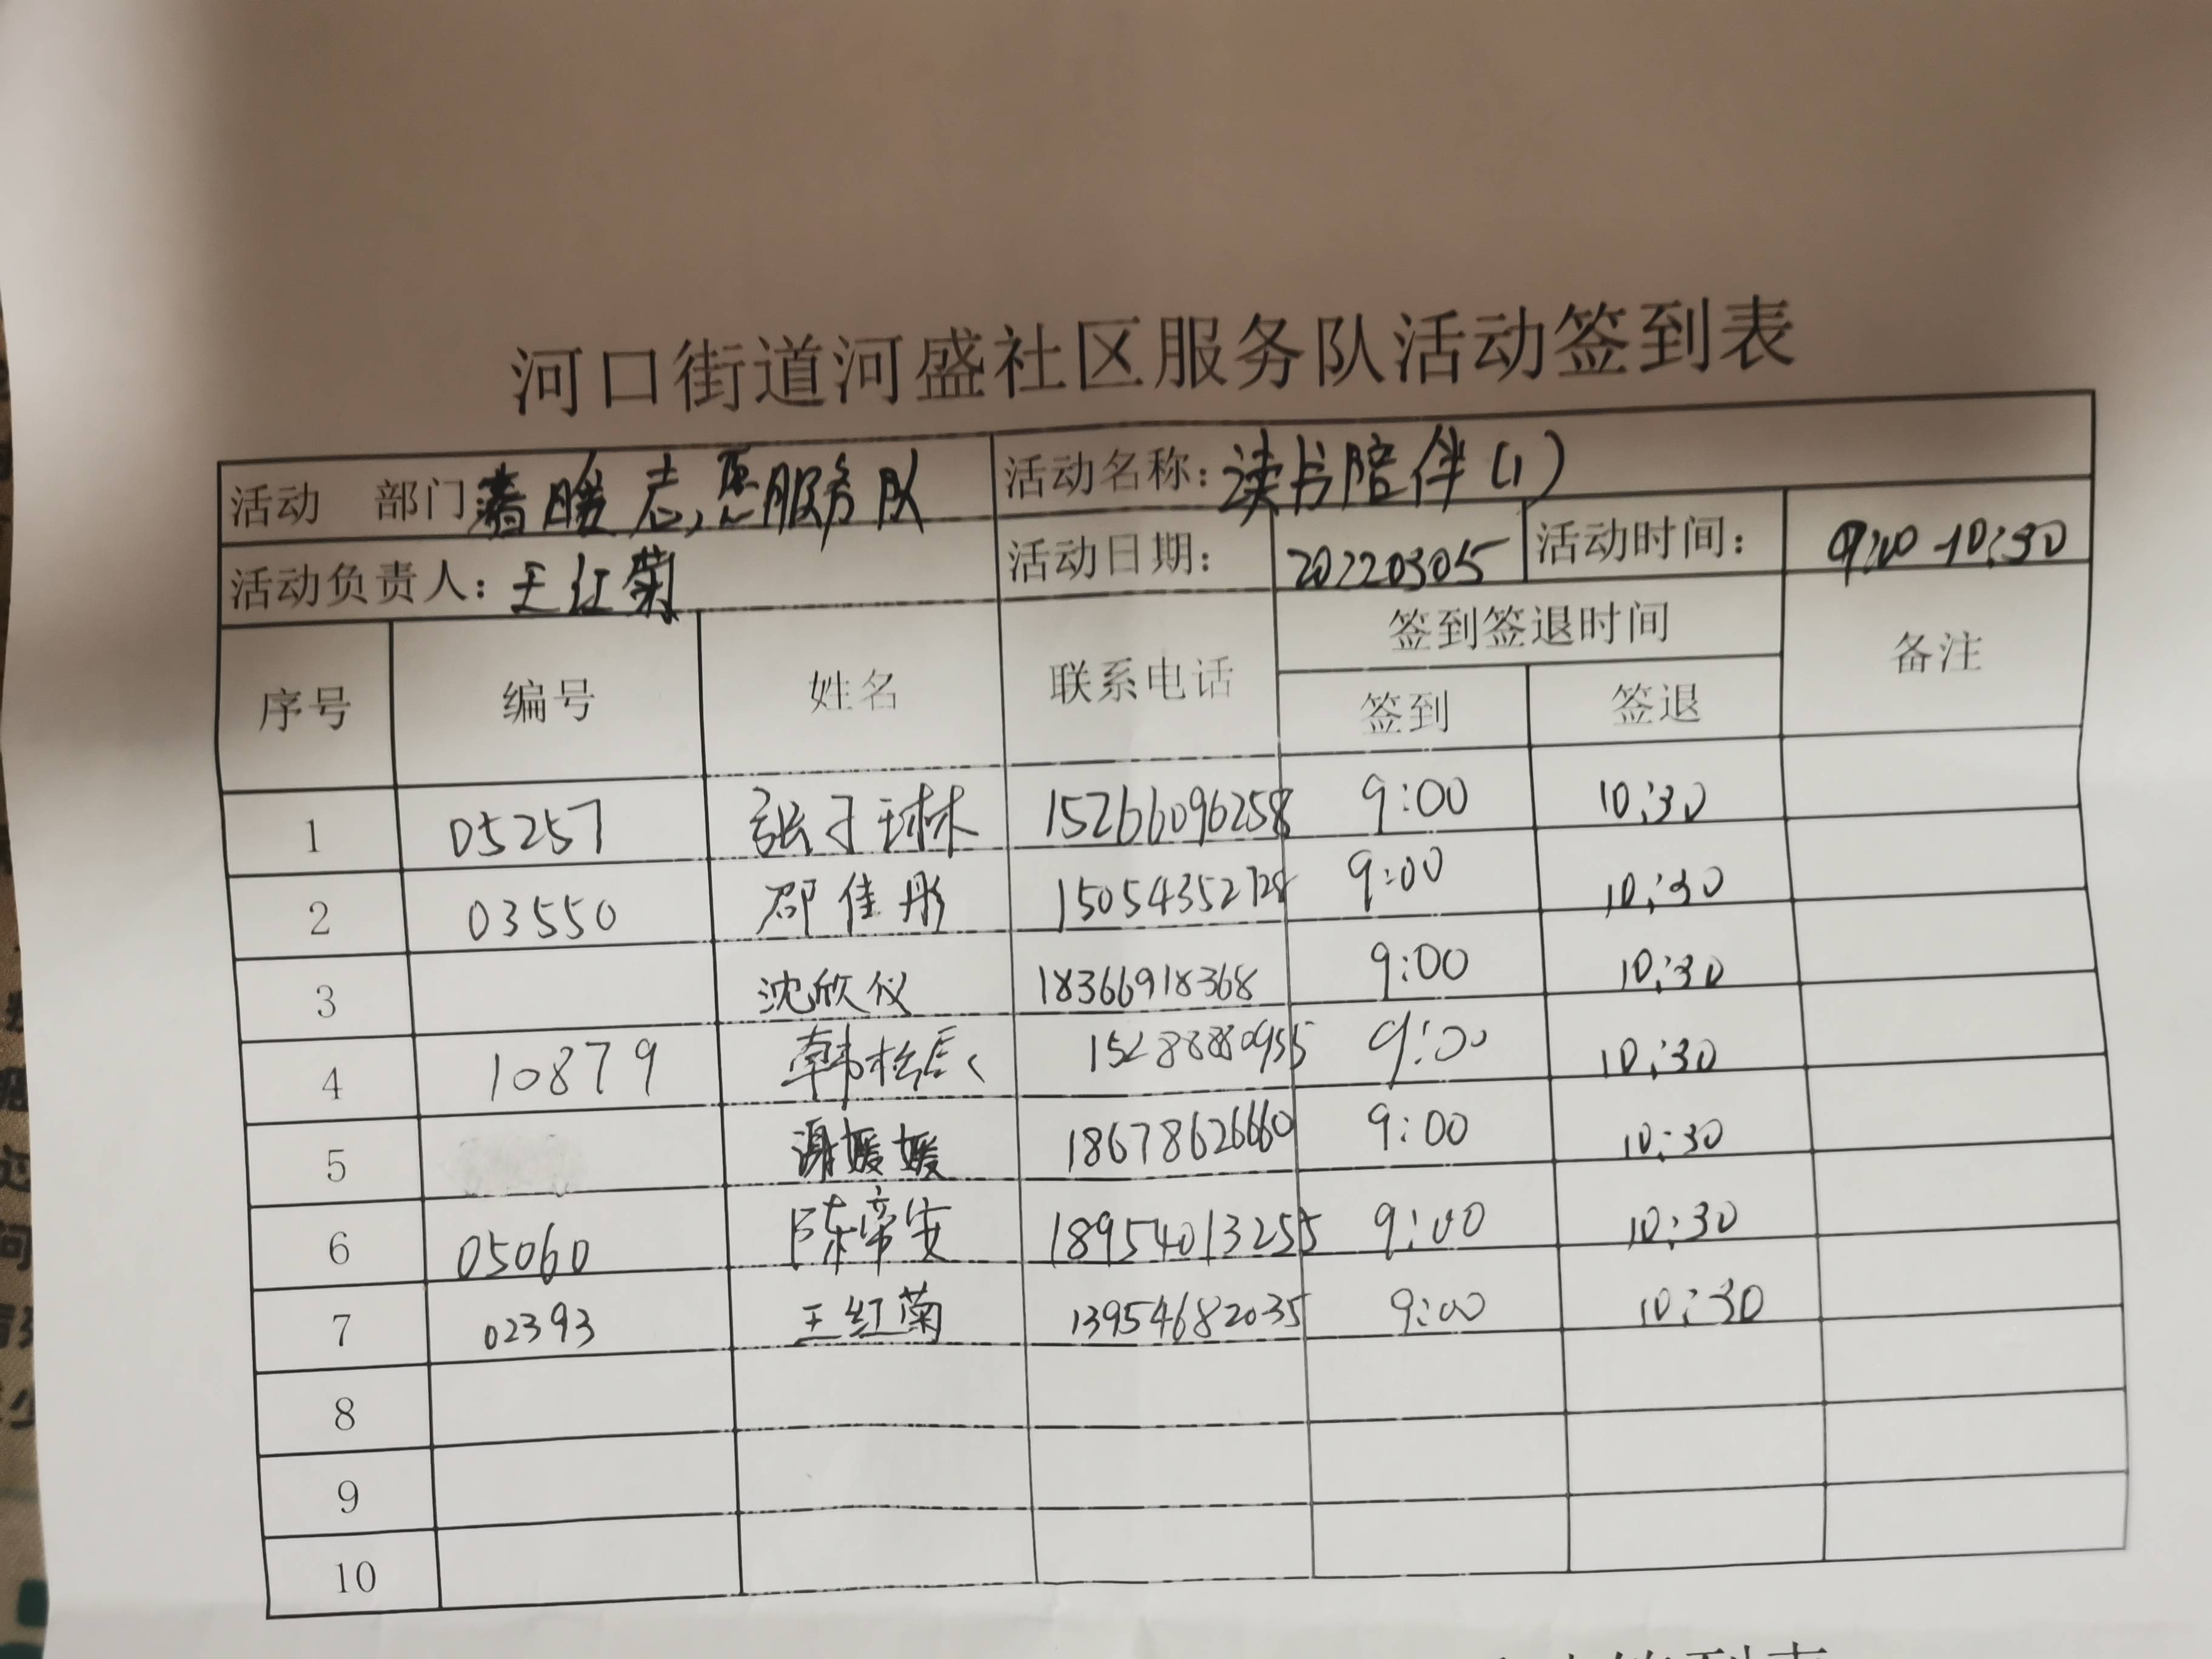 河口街道河盛社区服务队活动签到表
活动 部门 春暖志愿服务队 活动名称：读书陪伴(1)
活动负责人：王红菊 活动日期： 20220305 活动时间： 9:00-10:30
序号 编号 姓名 联系电话 签到签退时间 备注
签到 签退
1 05257 张于琳 15266096258 9:00 10:30
2 03550 邵佳彤 15054352728 9:00 10:30
3 沈欣仪 18366918368 9:00 10:30
4 10879 韩松辰 15288880955 9:00 10:30
5 谢媛媛 18678626660 9:00 10:30
6 05060 陈帝安 18954013255 9:00 10:30
7 02393 王红菊 13954682035 9:00 10:30
8
9
10